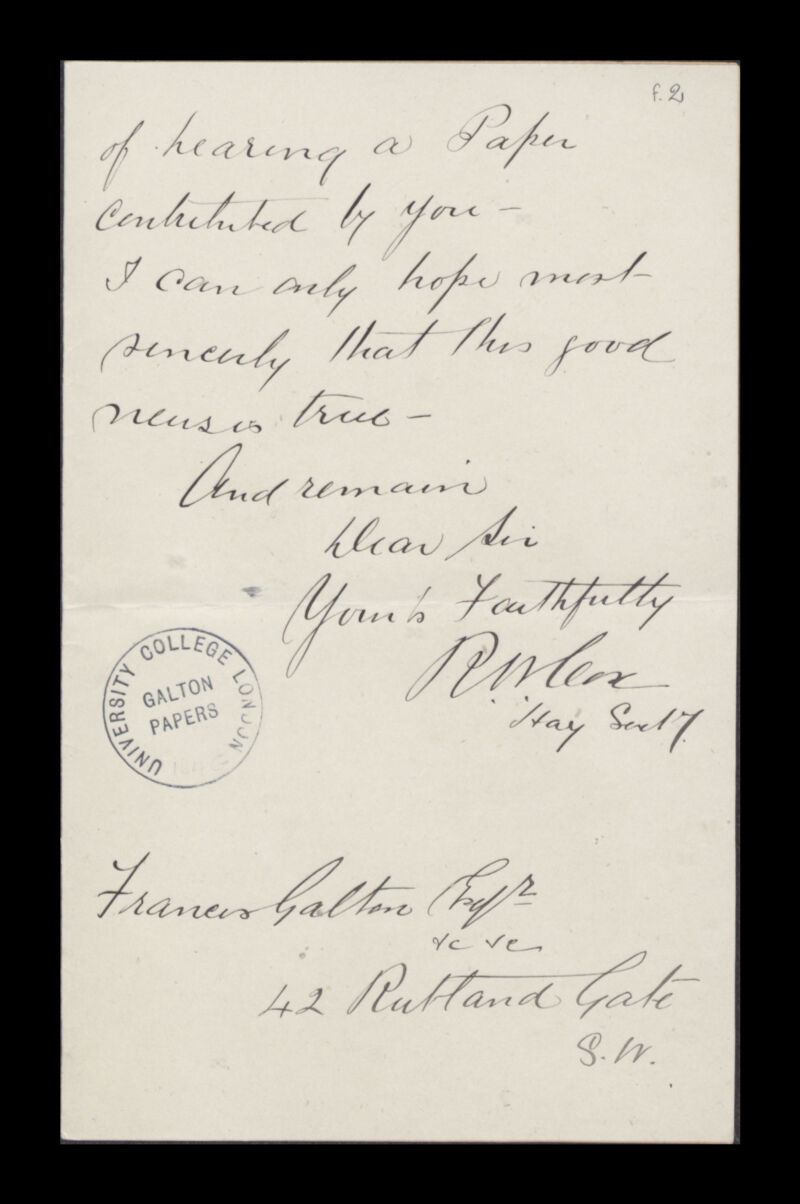 f.2
of hearing a Paper
contributed by you –
I can only hope most
sincerely that this good
news is true –
And remain
Dear Sir
Yours Faithfully
R W Cox
Hay Secty
UNIVERSITY COLLEGE LONDON
GALTON
PAPERS
Francis Galton Esqr
&c &c
42 Rutland Gate
S.W.